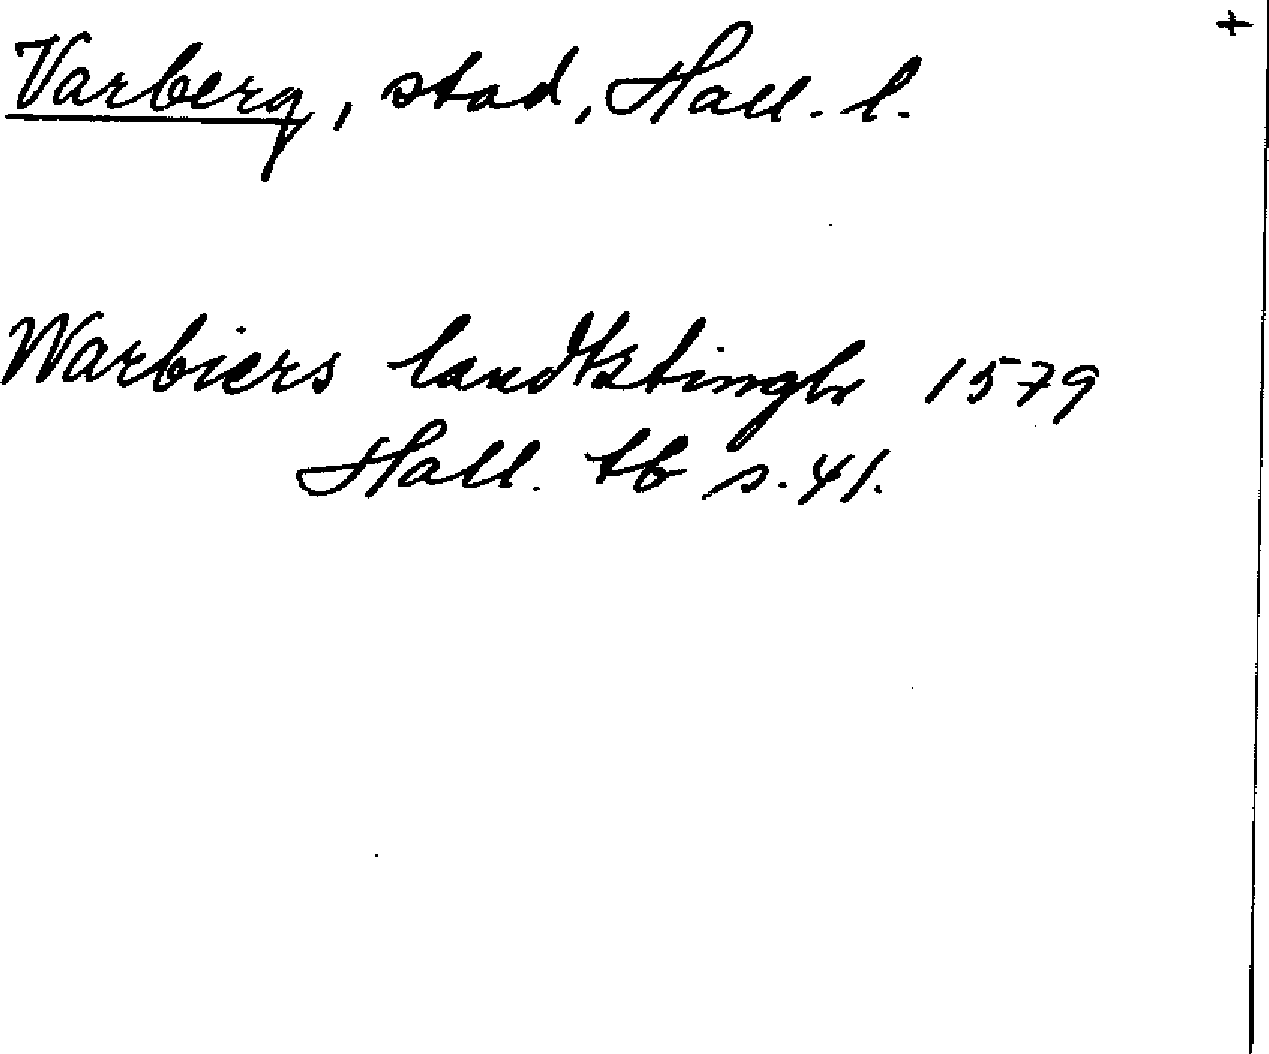 +
Varberg, stad, Hall. l.
Warbiers landtztingh 1579
Hall. tb s. 41.